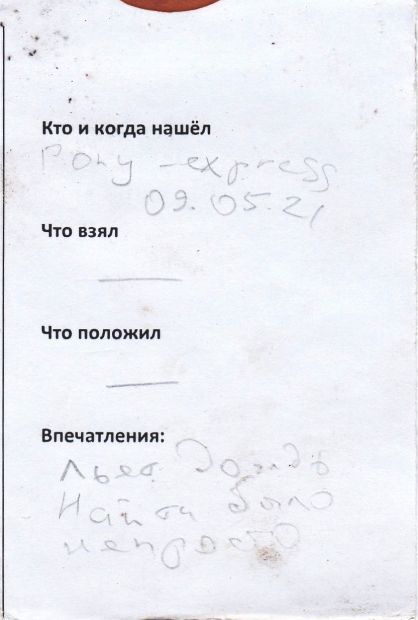 Кто и когда нашёл
Pony-express
09.05.21
Что взял
Что положил
Впечатления:
Льет дождь
Найти было
непросто